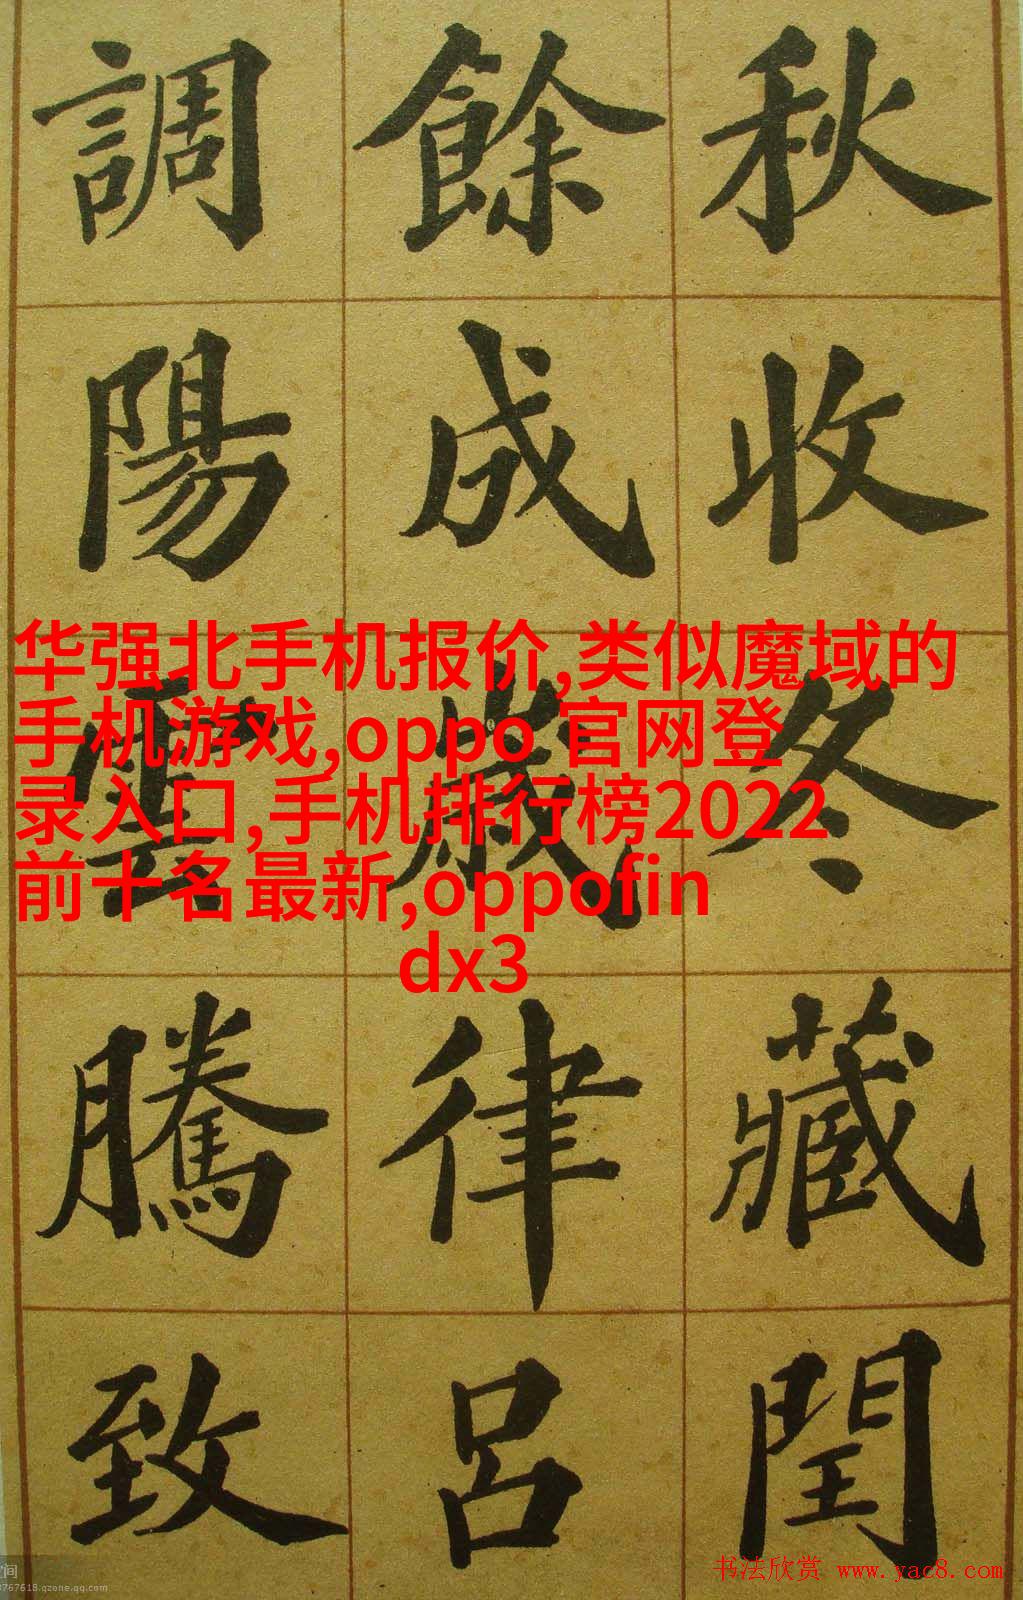 秋收冬藏閏
餘成歲律呂
調陽雲騰致
华强北手机报价,类似魔域的
手机游戏,oppo 官网登
录入口,手机排行榜2022
前十名最新,oppofin
dx3
书法欣赏 www.yac8.com
空间
3767618.qzone.qq.com